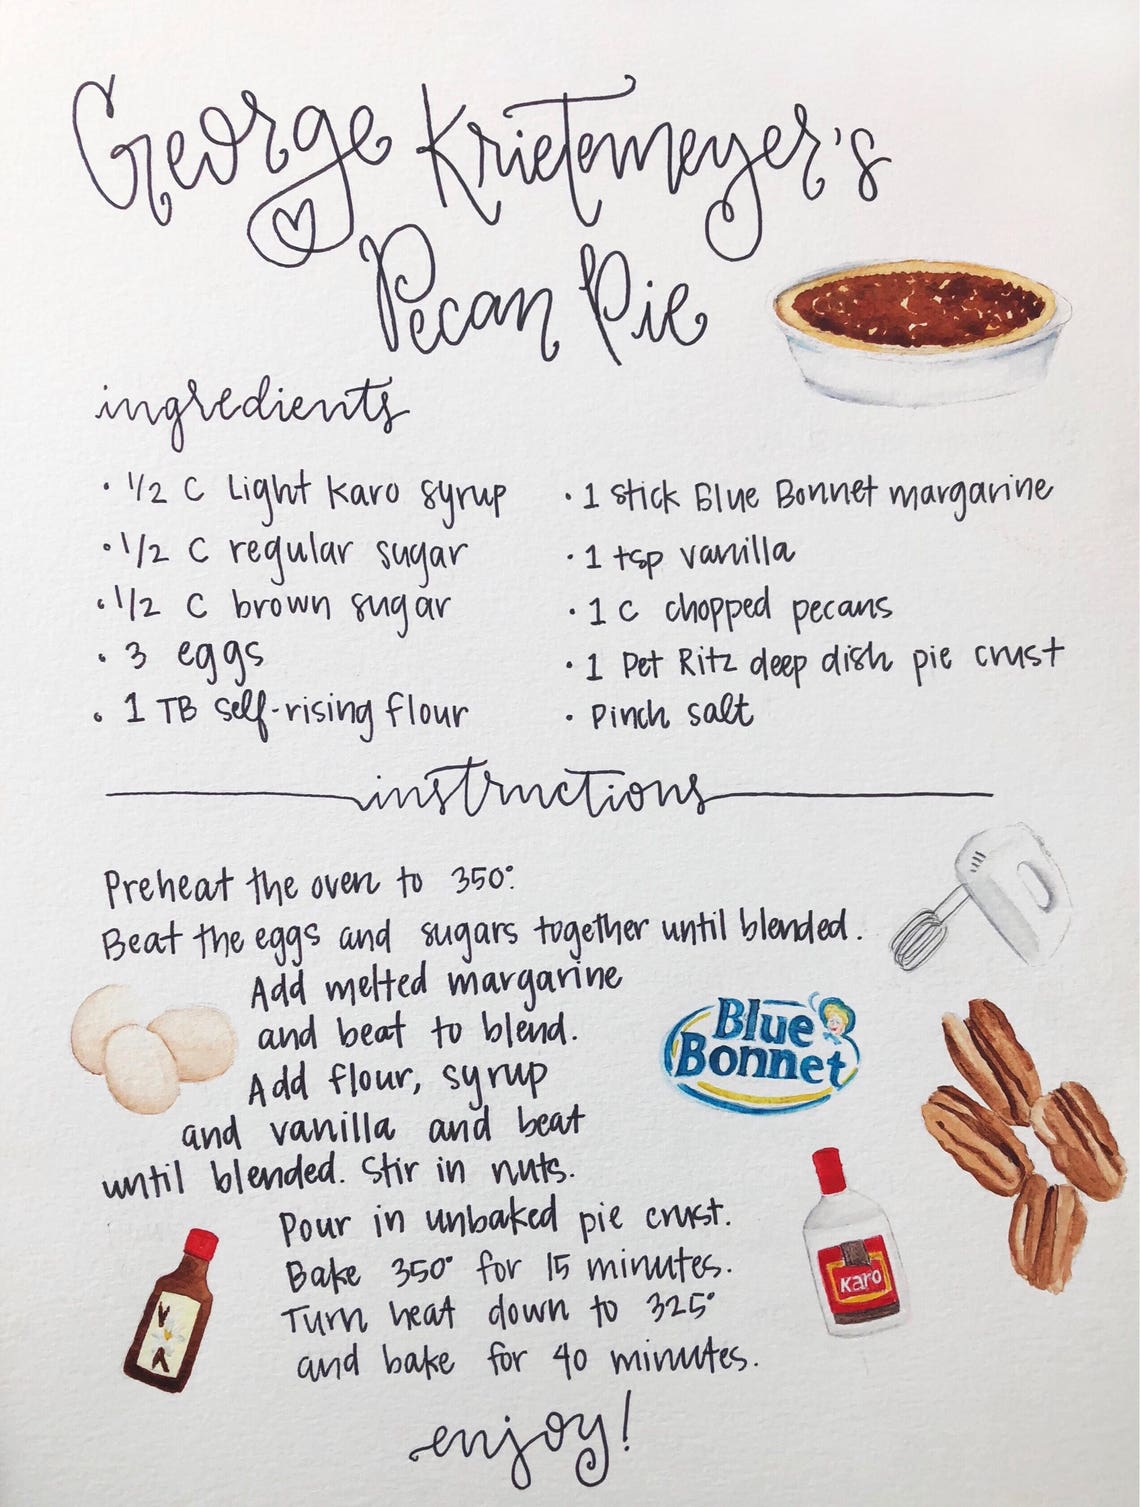 George Krietemeyer's
Pecan Pie
ingredients
• 1/2 C Light Karo syrup
• 1/2 C regular sugar
• 1/2 C brown sugar
• 3 eggs
• 1 TB self-rising flour
• 1 stick Blue Bonnet margarine
• 1 tsp vanilla
• 1 C chopped pecans
• 1 Pet Ritz deep dish pie crust
• Pinch salt
instructions
Preheat the oven to 350°.
Beat the eggs and sugars together until blended.
Add melted margarine
and beat to blend.
Add flour, syrup
and vanilla and beat
until blended. Stir in nuts.
Pour in unbaked pie crust.
Bake 350° for 15 minutes.
Turn heat down to 325°
and bake for 40 minutes.
enjoy!
Blue
Bonnet
Karo